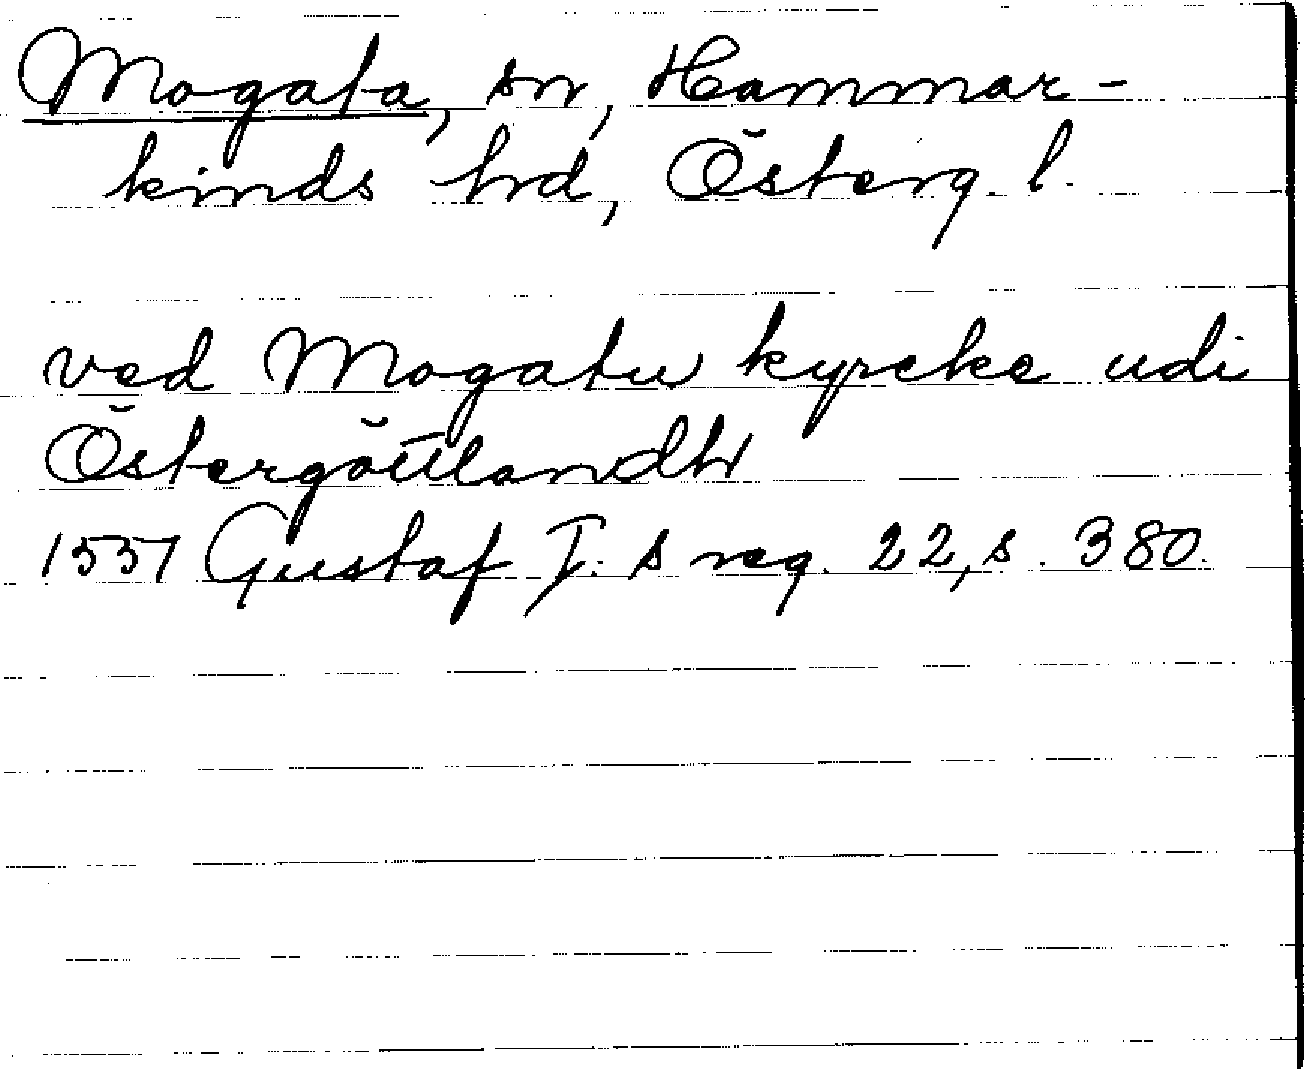 Mogata, sn, Hammar-
kinds hd, Österg. l.
ved Mogatu kyrcke udi
Östergöttlandh
1551 Gustaf I:s reg. 22, s. 380.